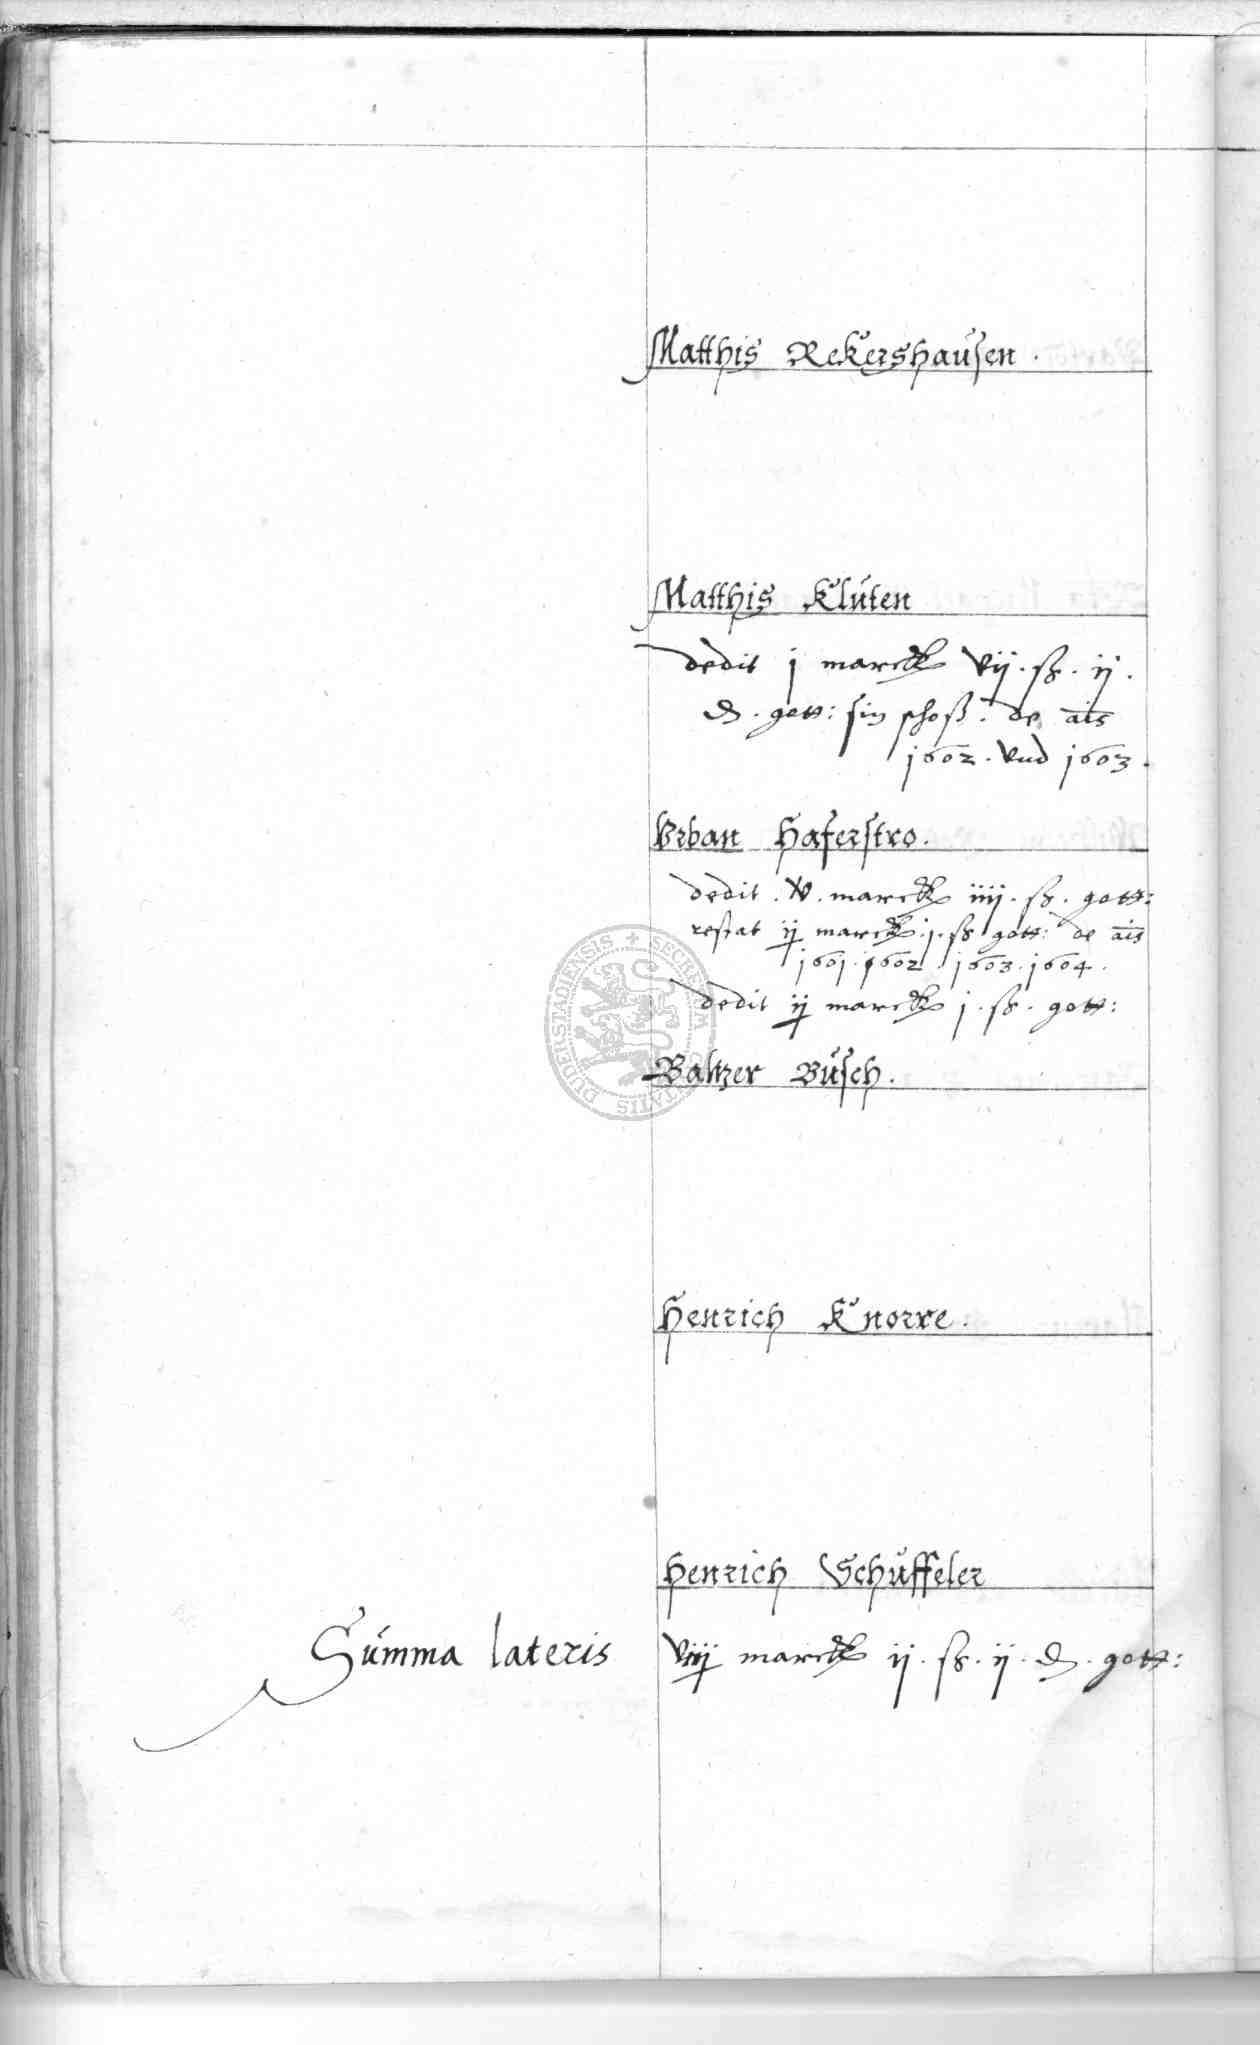 Matthis Rekershausen.
Matthis Kluten
dedit j marck vij. ß. ij.
₰. gott: sin schoß. de ais
1602. vnd 1603.
Vrban Haferstro.
dedit. v. marck iiij. ß. gott:
restat ij marck. j. ß gott: de ais
1601. 1602. 1603. 1604.
dedit ij marck j. ß. gott:
Baltzer Busch.
Henrich Knorre.
Henrich Schuffeler
Summa lateris viij marck ij. ß. ij. ₰. gott:
SECRETUM CIVITATIS DUDERSTADIENSIS